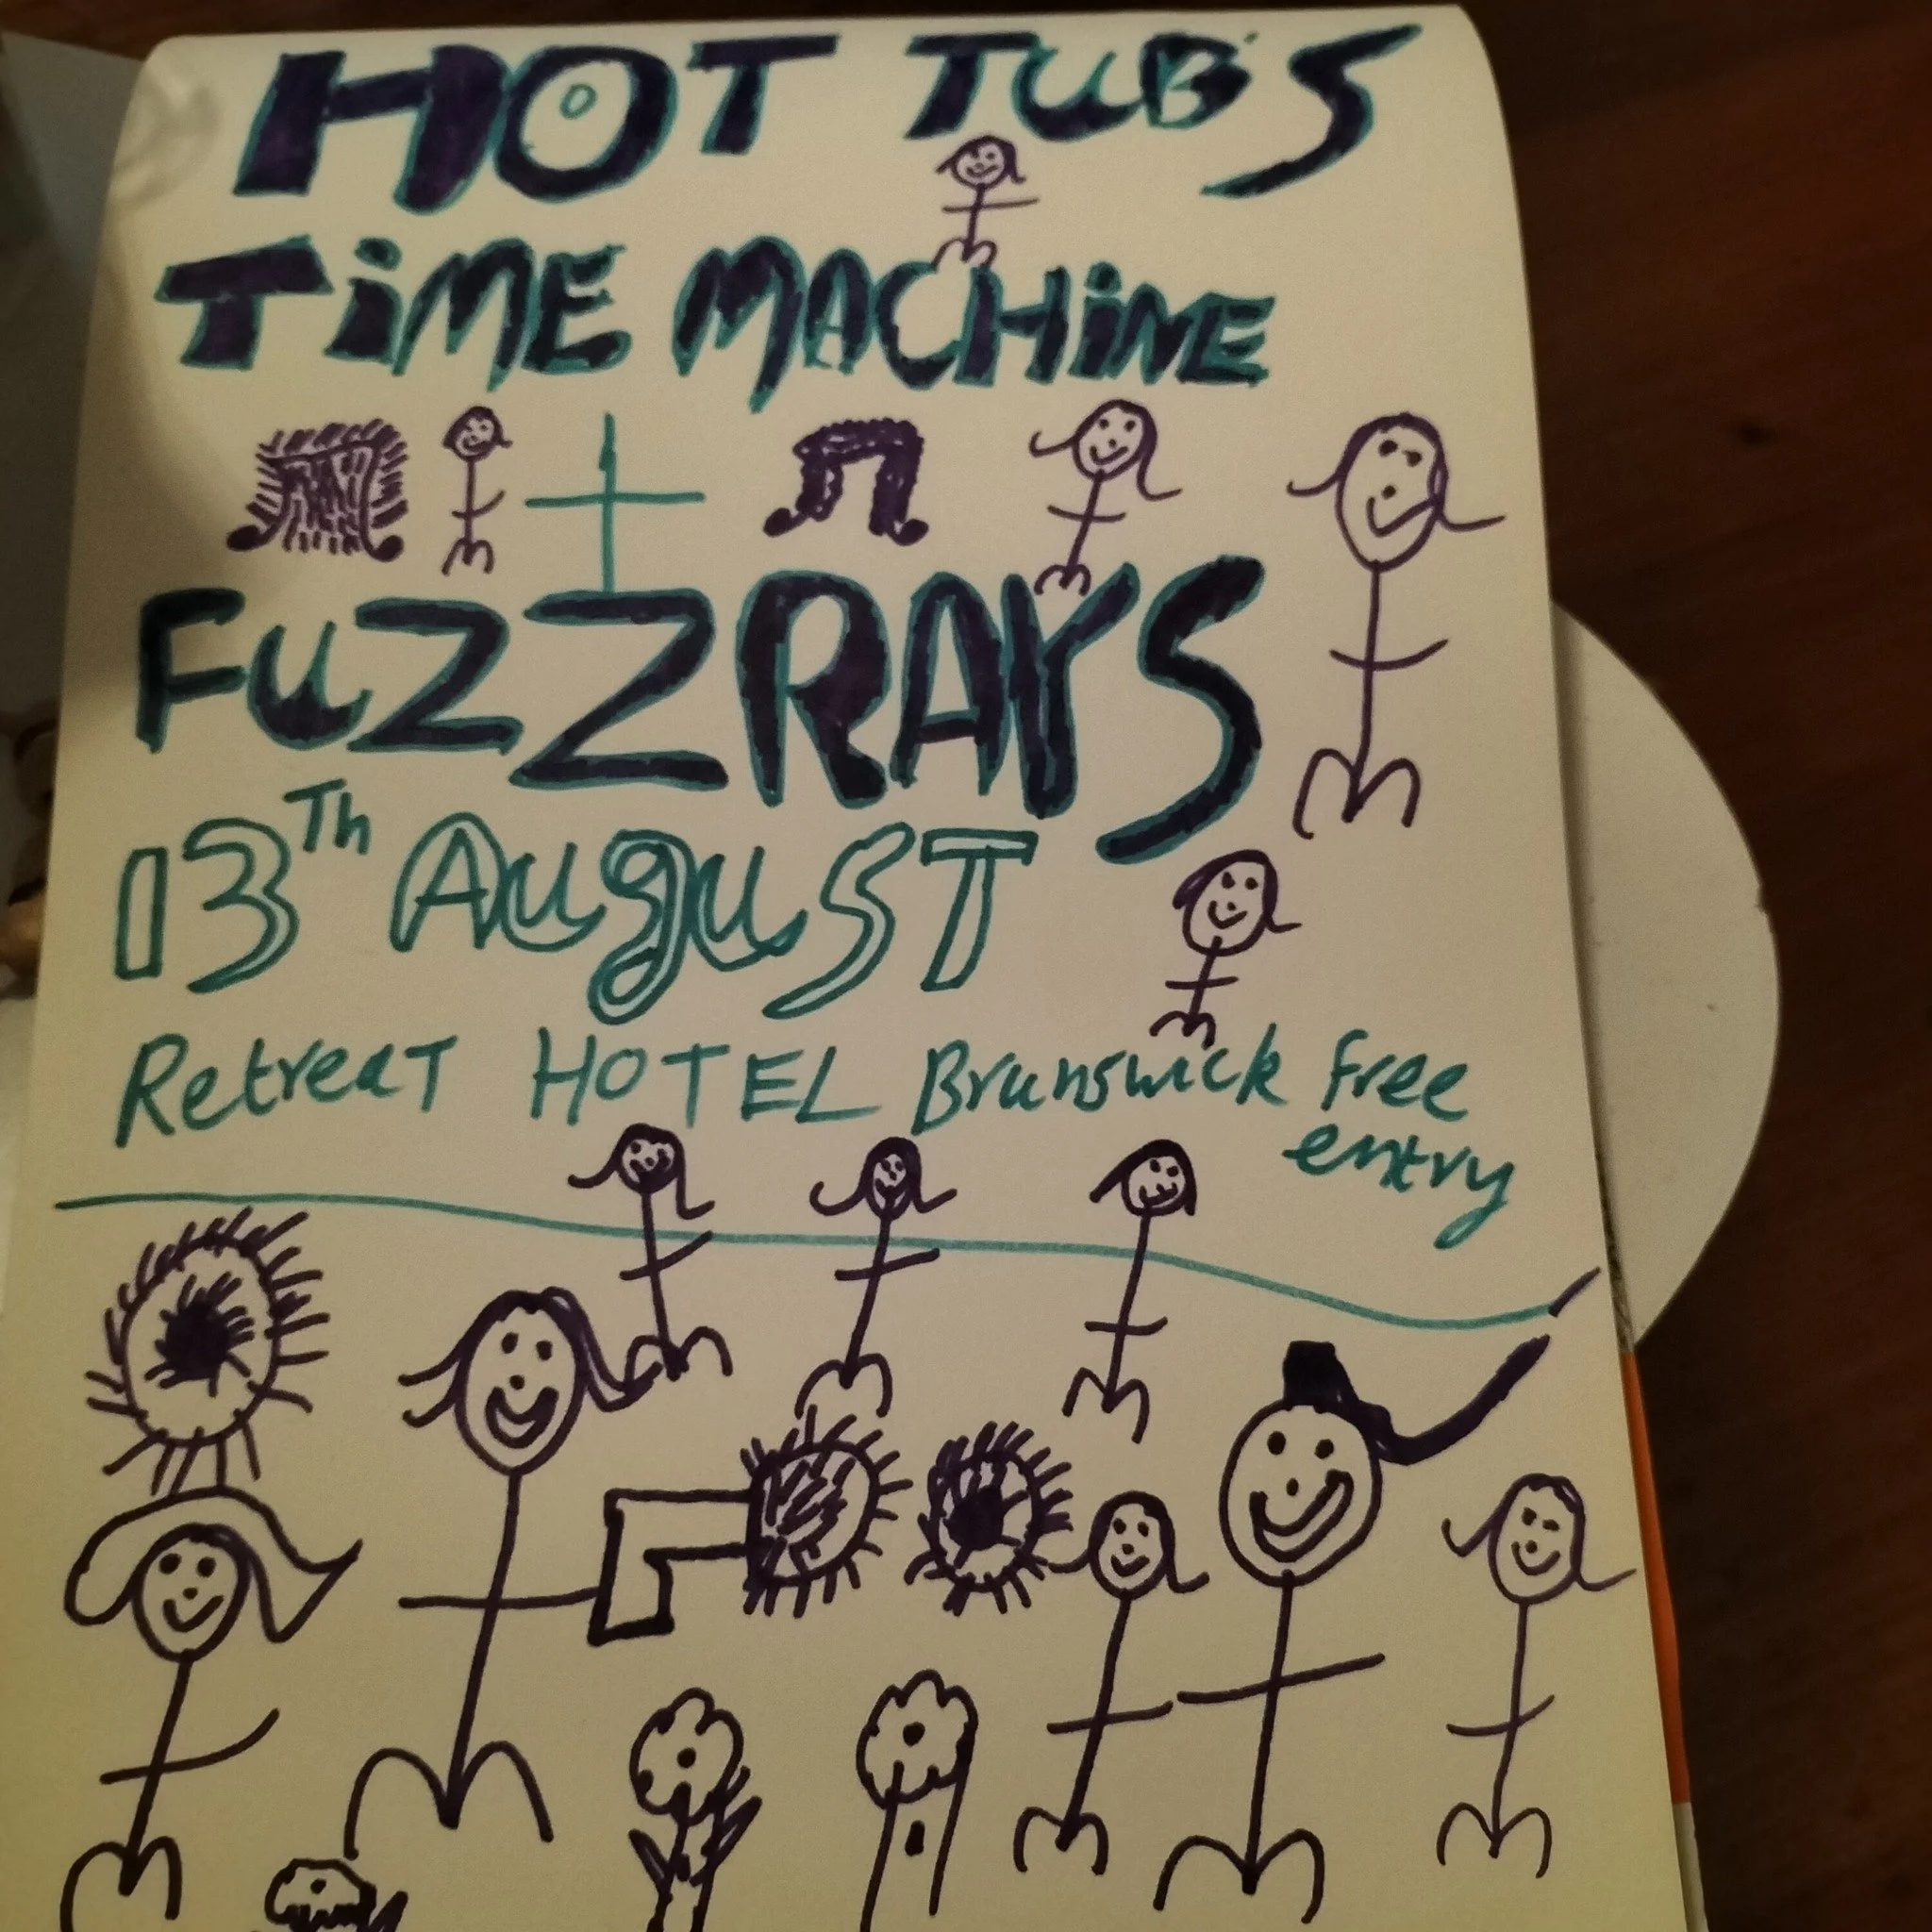 HOT TUBS
TiME MACHiNE
FuZZRAYS
13Th AuguST
RetreaT HOTEL Brunswick free
entry